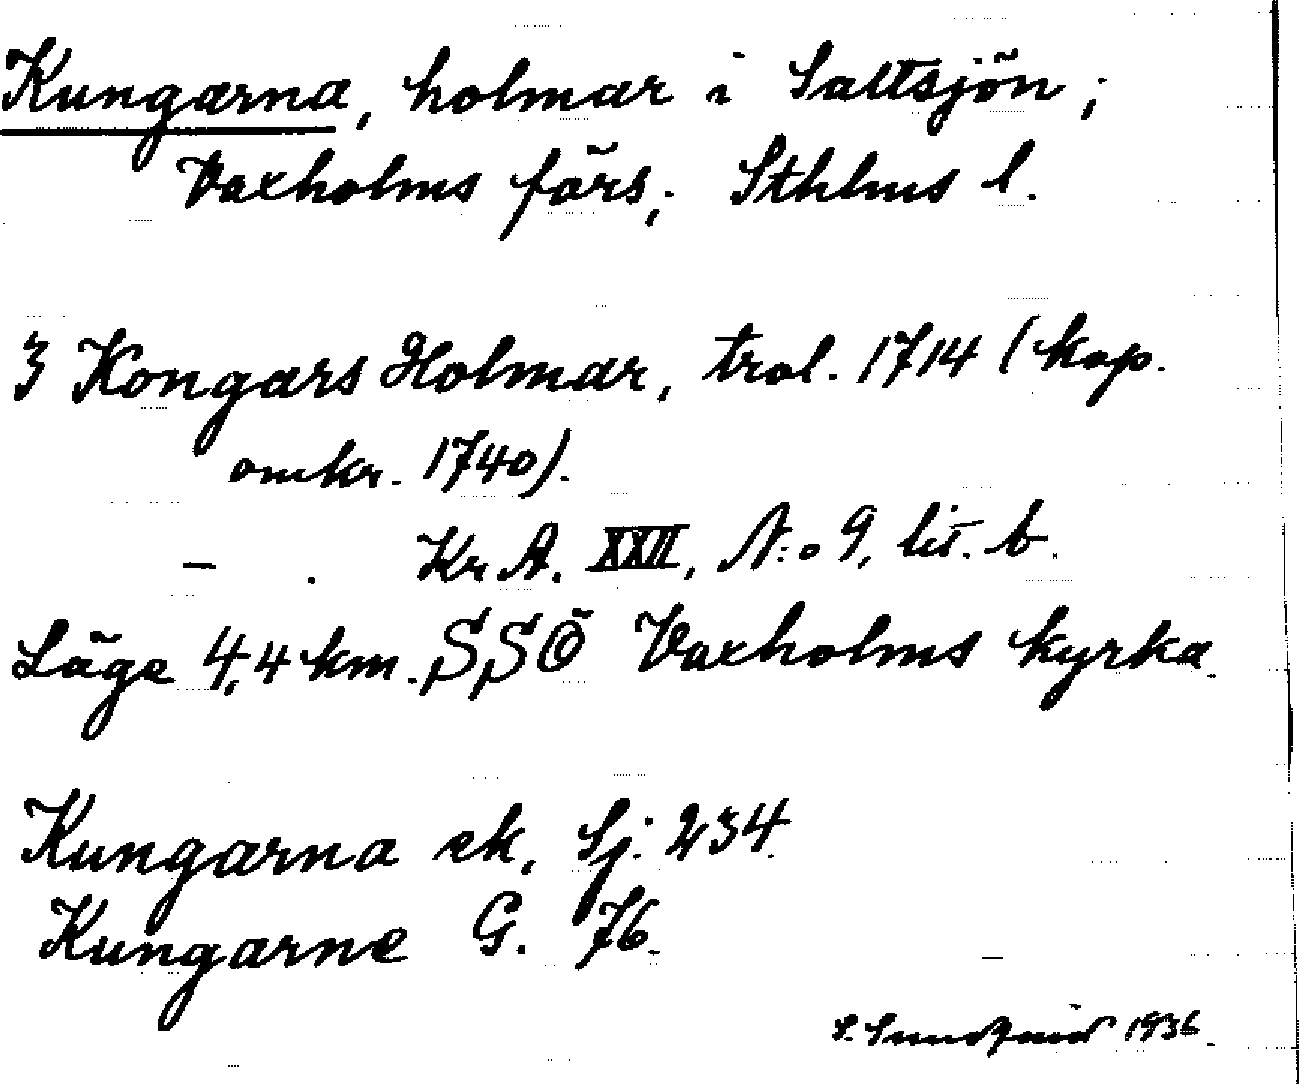 Kungarna, holmar i Saltsjön;
Vaxholms förs; Sthlms l.
3 Kongars Holmar, trol. 1714 (kop.
omkr. 1740).
Kr A. XXII, N:o 9, lit. b.
Läge 4,4 km. SSÖ Vaxholms kyrka.
Kungarna ek, Sj. 234.
Kungarne G. 76.
S. Sundqvist 1936.